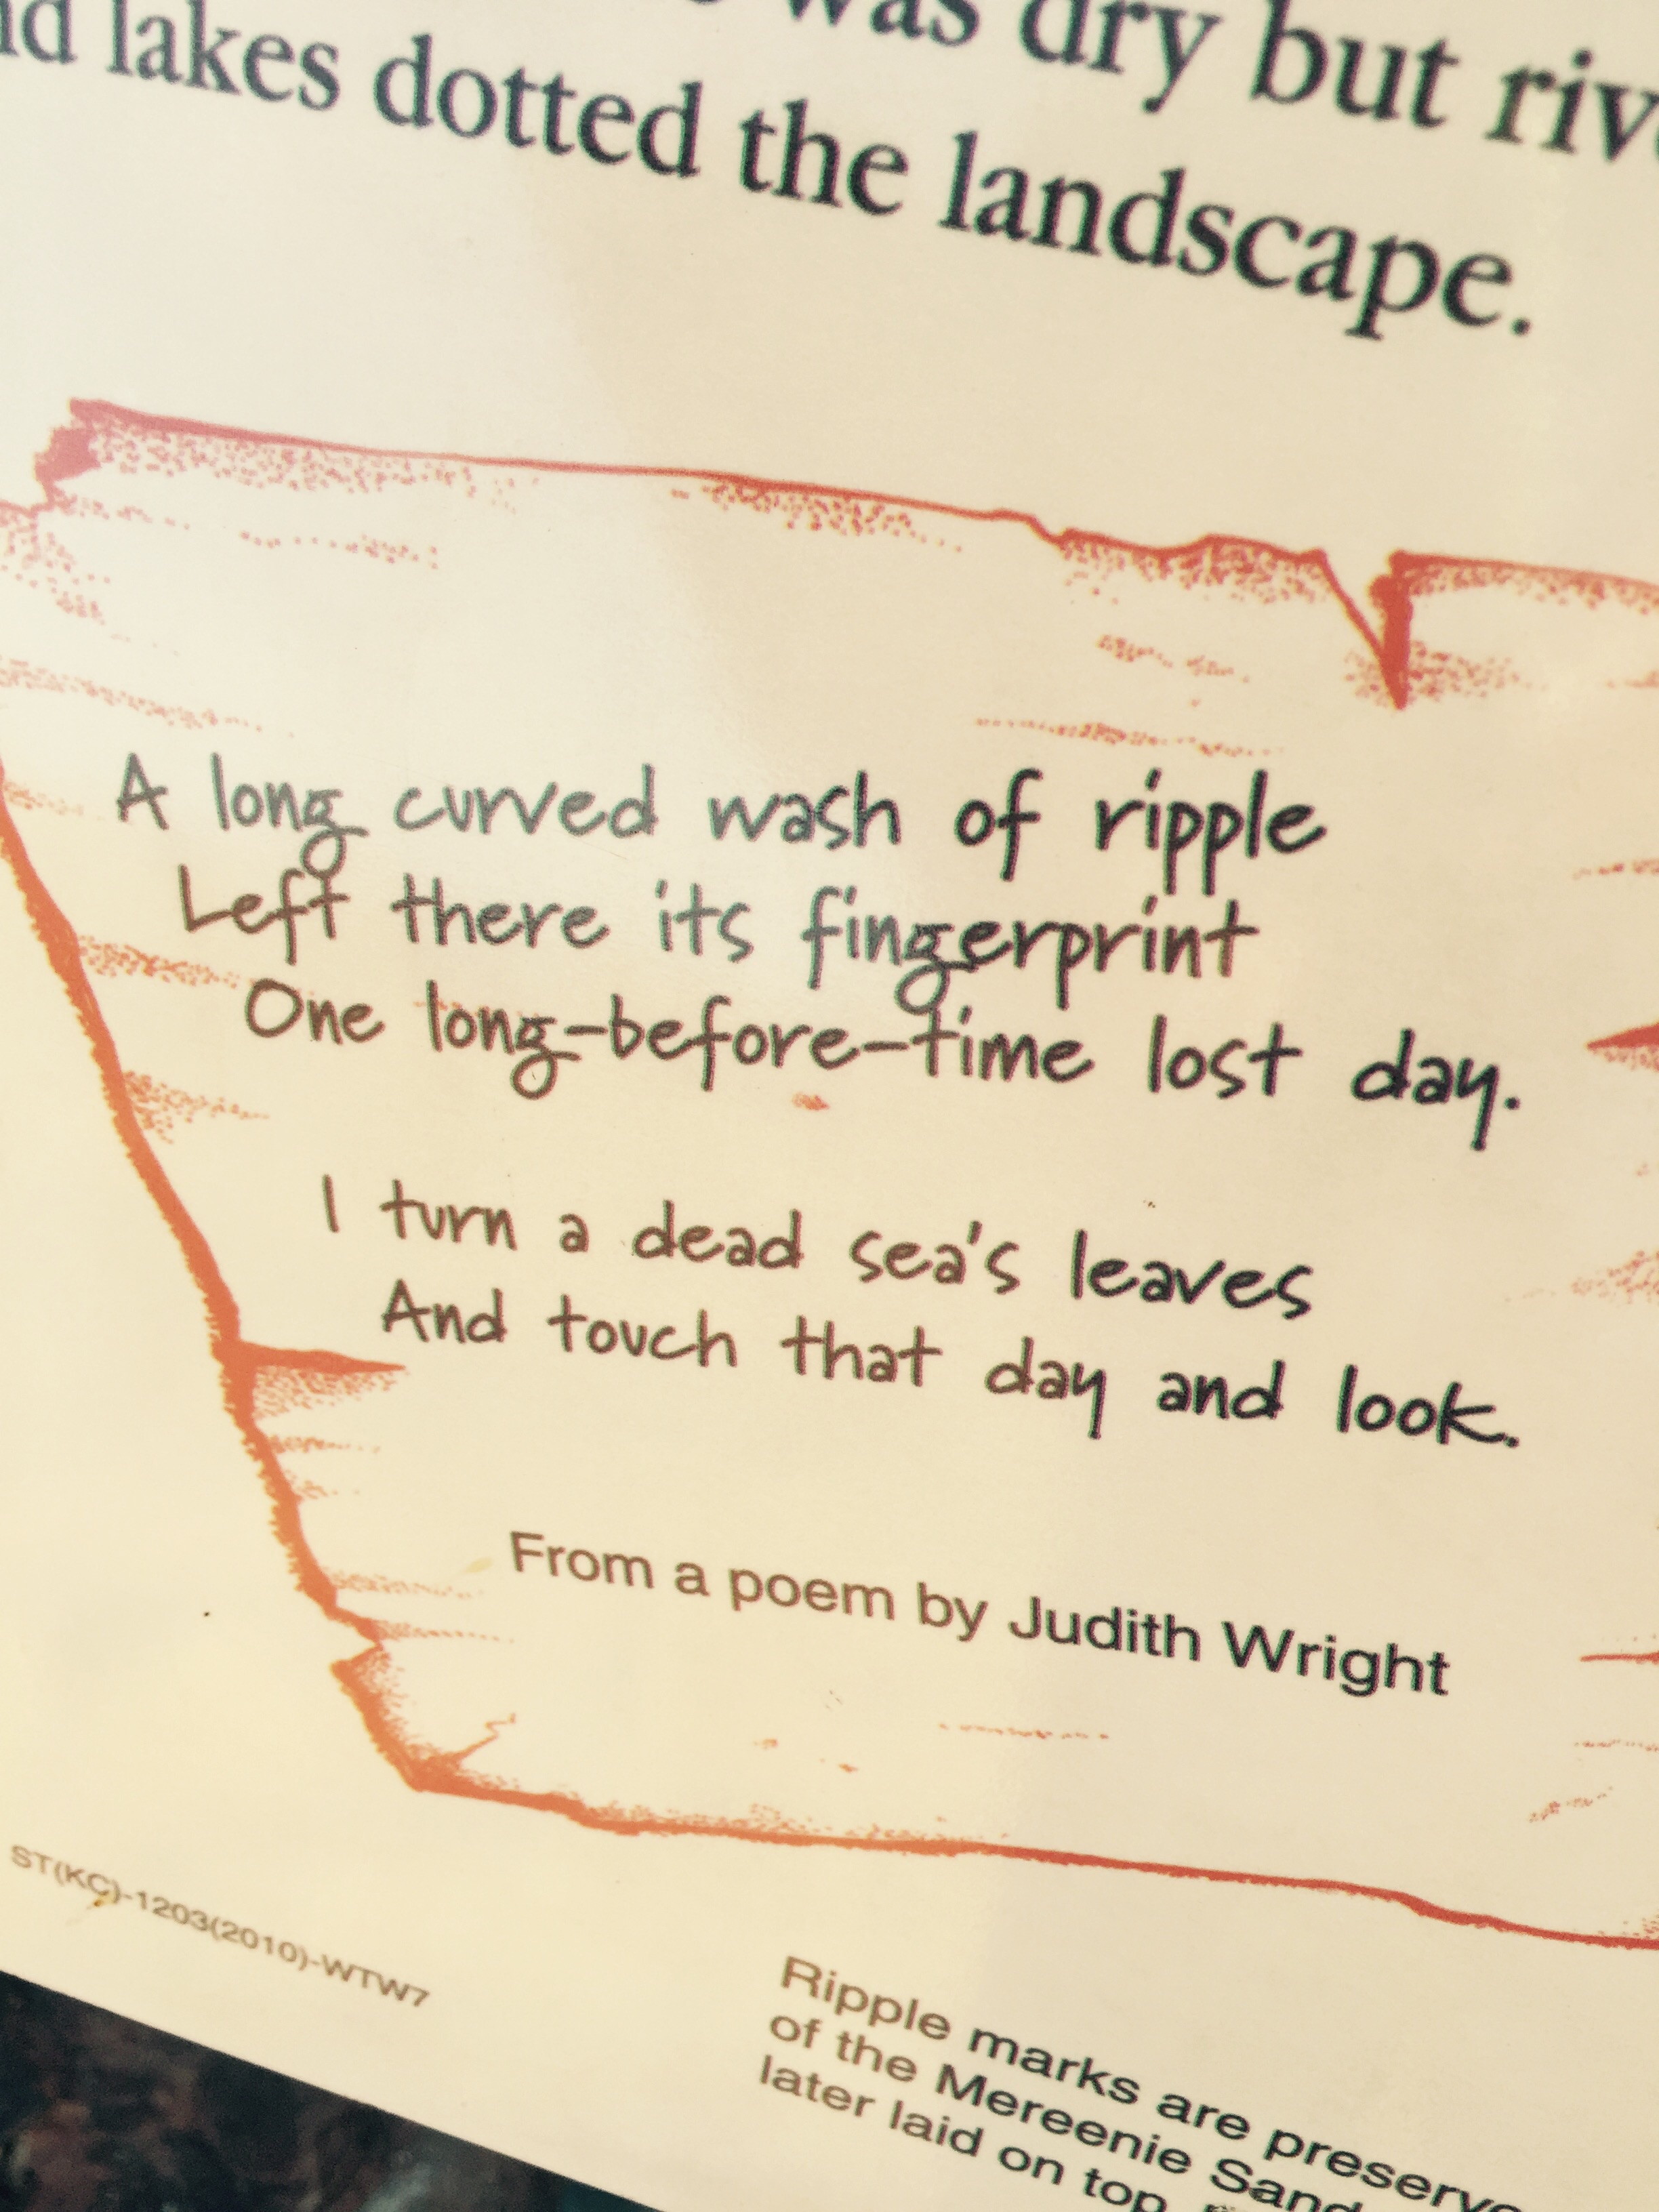 was dry but
lakes dotted the landscape.
A long curved wash of ripple
Left there its fingerprint
One long-before-time lost day.
I turn a dead sea's leaves
And touch that day and look.
From a poem by Judith Wright
ST(KC)-1203(2010)-WTW7
Ripple marks are
of the Mereenie
later laid on top